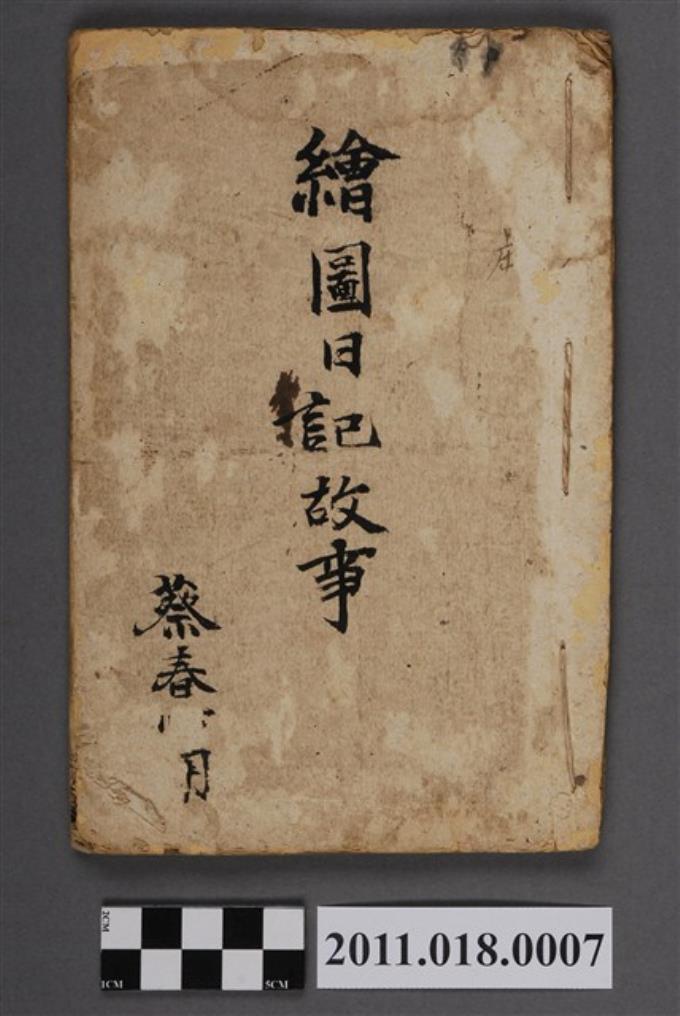 繪圖日記故事
蔡春
月
2011.018.0007
2CM
1CM
5CM